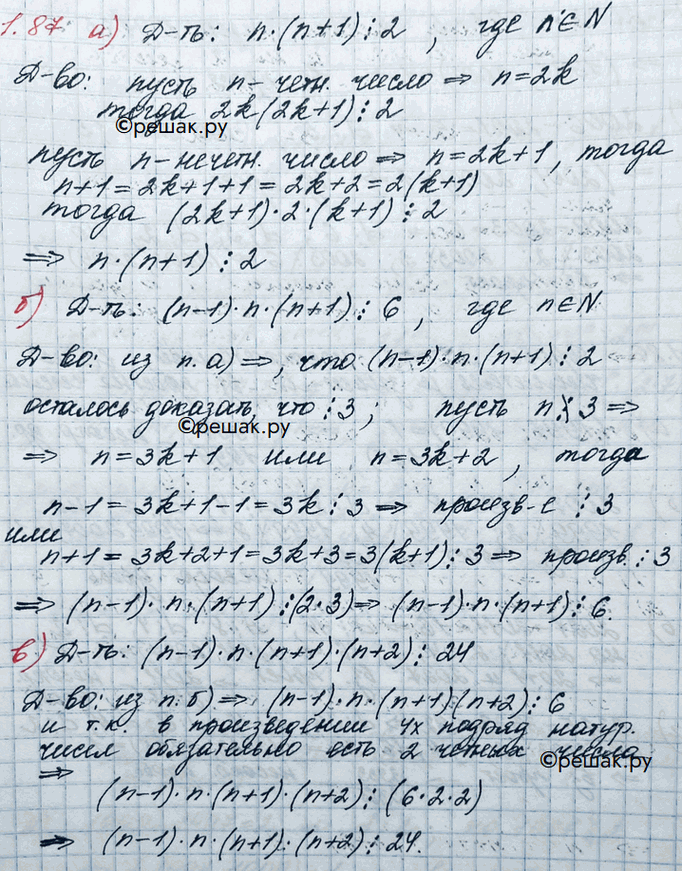 1.87 а) Д-ть: n·(n+1)⋮2, где n∈N
Д-во: пусть n - четн. число ⇒ n=2k
тогда 2k(2k+1)⋮2
©решак.ру
пусть n - нечетн. число ⇒ n=2k+1, тогда
n+1=2k+1+1=2k+2=2(k+1)
тогда (2k+1)·2·(k+1)⋮2
⇒ n·(n+1)⋮2
б) Д-ть: (n-1)·n·(n+1)⋮6, где n∈N
Д-во: из п. а) ⇒, что (n-1)·n·(n+1)⋮2
осталось доказать, что ⋮3; пусть n⋮̸3 ⇒
©решак.ру
⇒ n=3k+1 или n=3k+2, тогда
n-1=3k+1-1=3k⋮3 ⇒ произв-е ⋮3
или
n+1=3k+2+1=3k+3=3(k+1)⋮3 ⇒ произв. ⋮3
⇒ (n-1)·n·(n+1)⋮(2·3) ⇒ (n-1)·n·(n+1)⋮6.
в) Д-ть: (n-1)·n·(n+1)·(n+2)⋮24
Д-во: из п. б) ⇒ (n-1)·n·(n+1)(n+2)⋮6
и т.к. в произведении 4х подряд натур.
чисел обязательно есть 2 четных числа
©решак.ру
⇒
(n-1)·n·(n+1)·(n+2)⋮(6·2·2)
⇒ (n-1)·n·(n+1)·(n+2)⋮24.